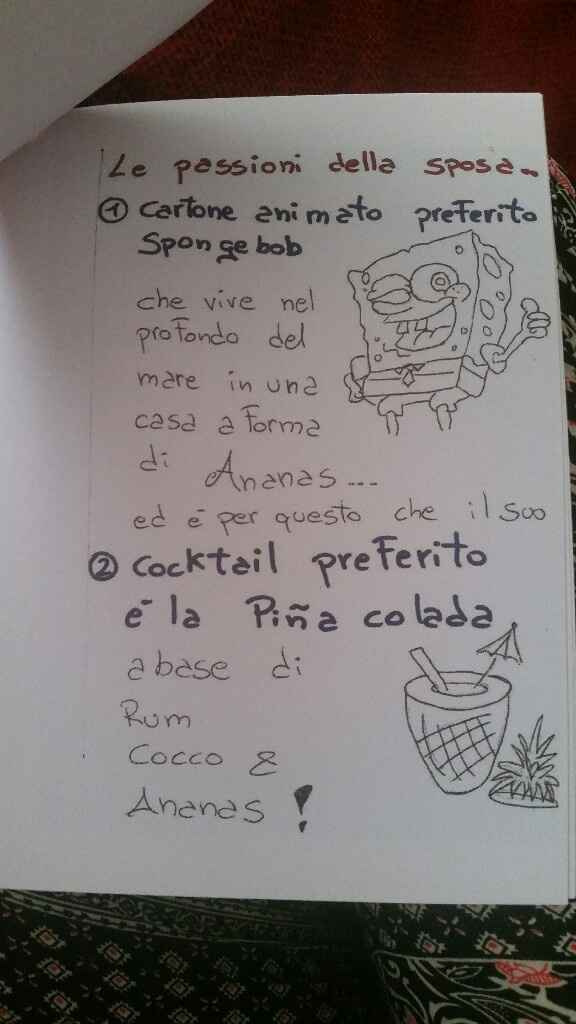 Le passioni della sposa...
① Cartone animato preferito
Spongebob
che vive nel
profondo del
mare in una
casa a forma
di Ananas...
ed è per questo che il suo
② Cocktail preferito
è la Piña colada
a base di
Rum
Cocco &
Ananas !